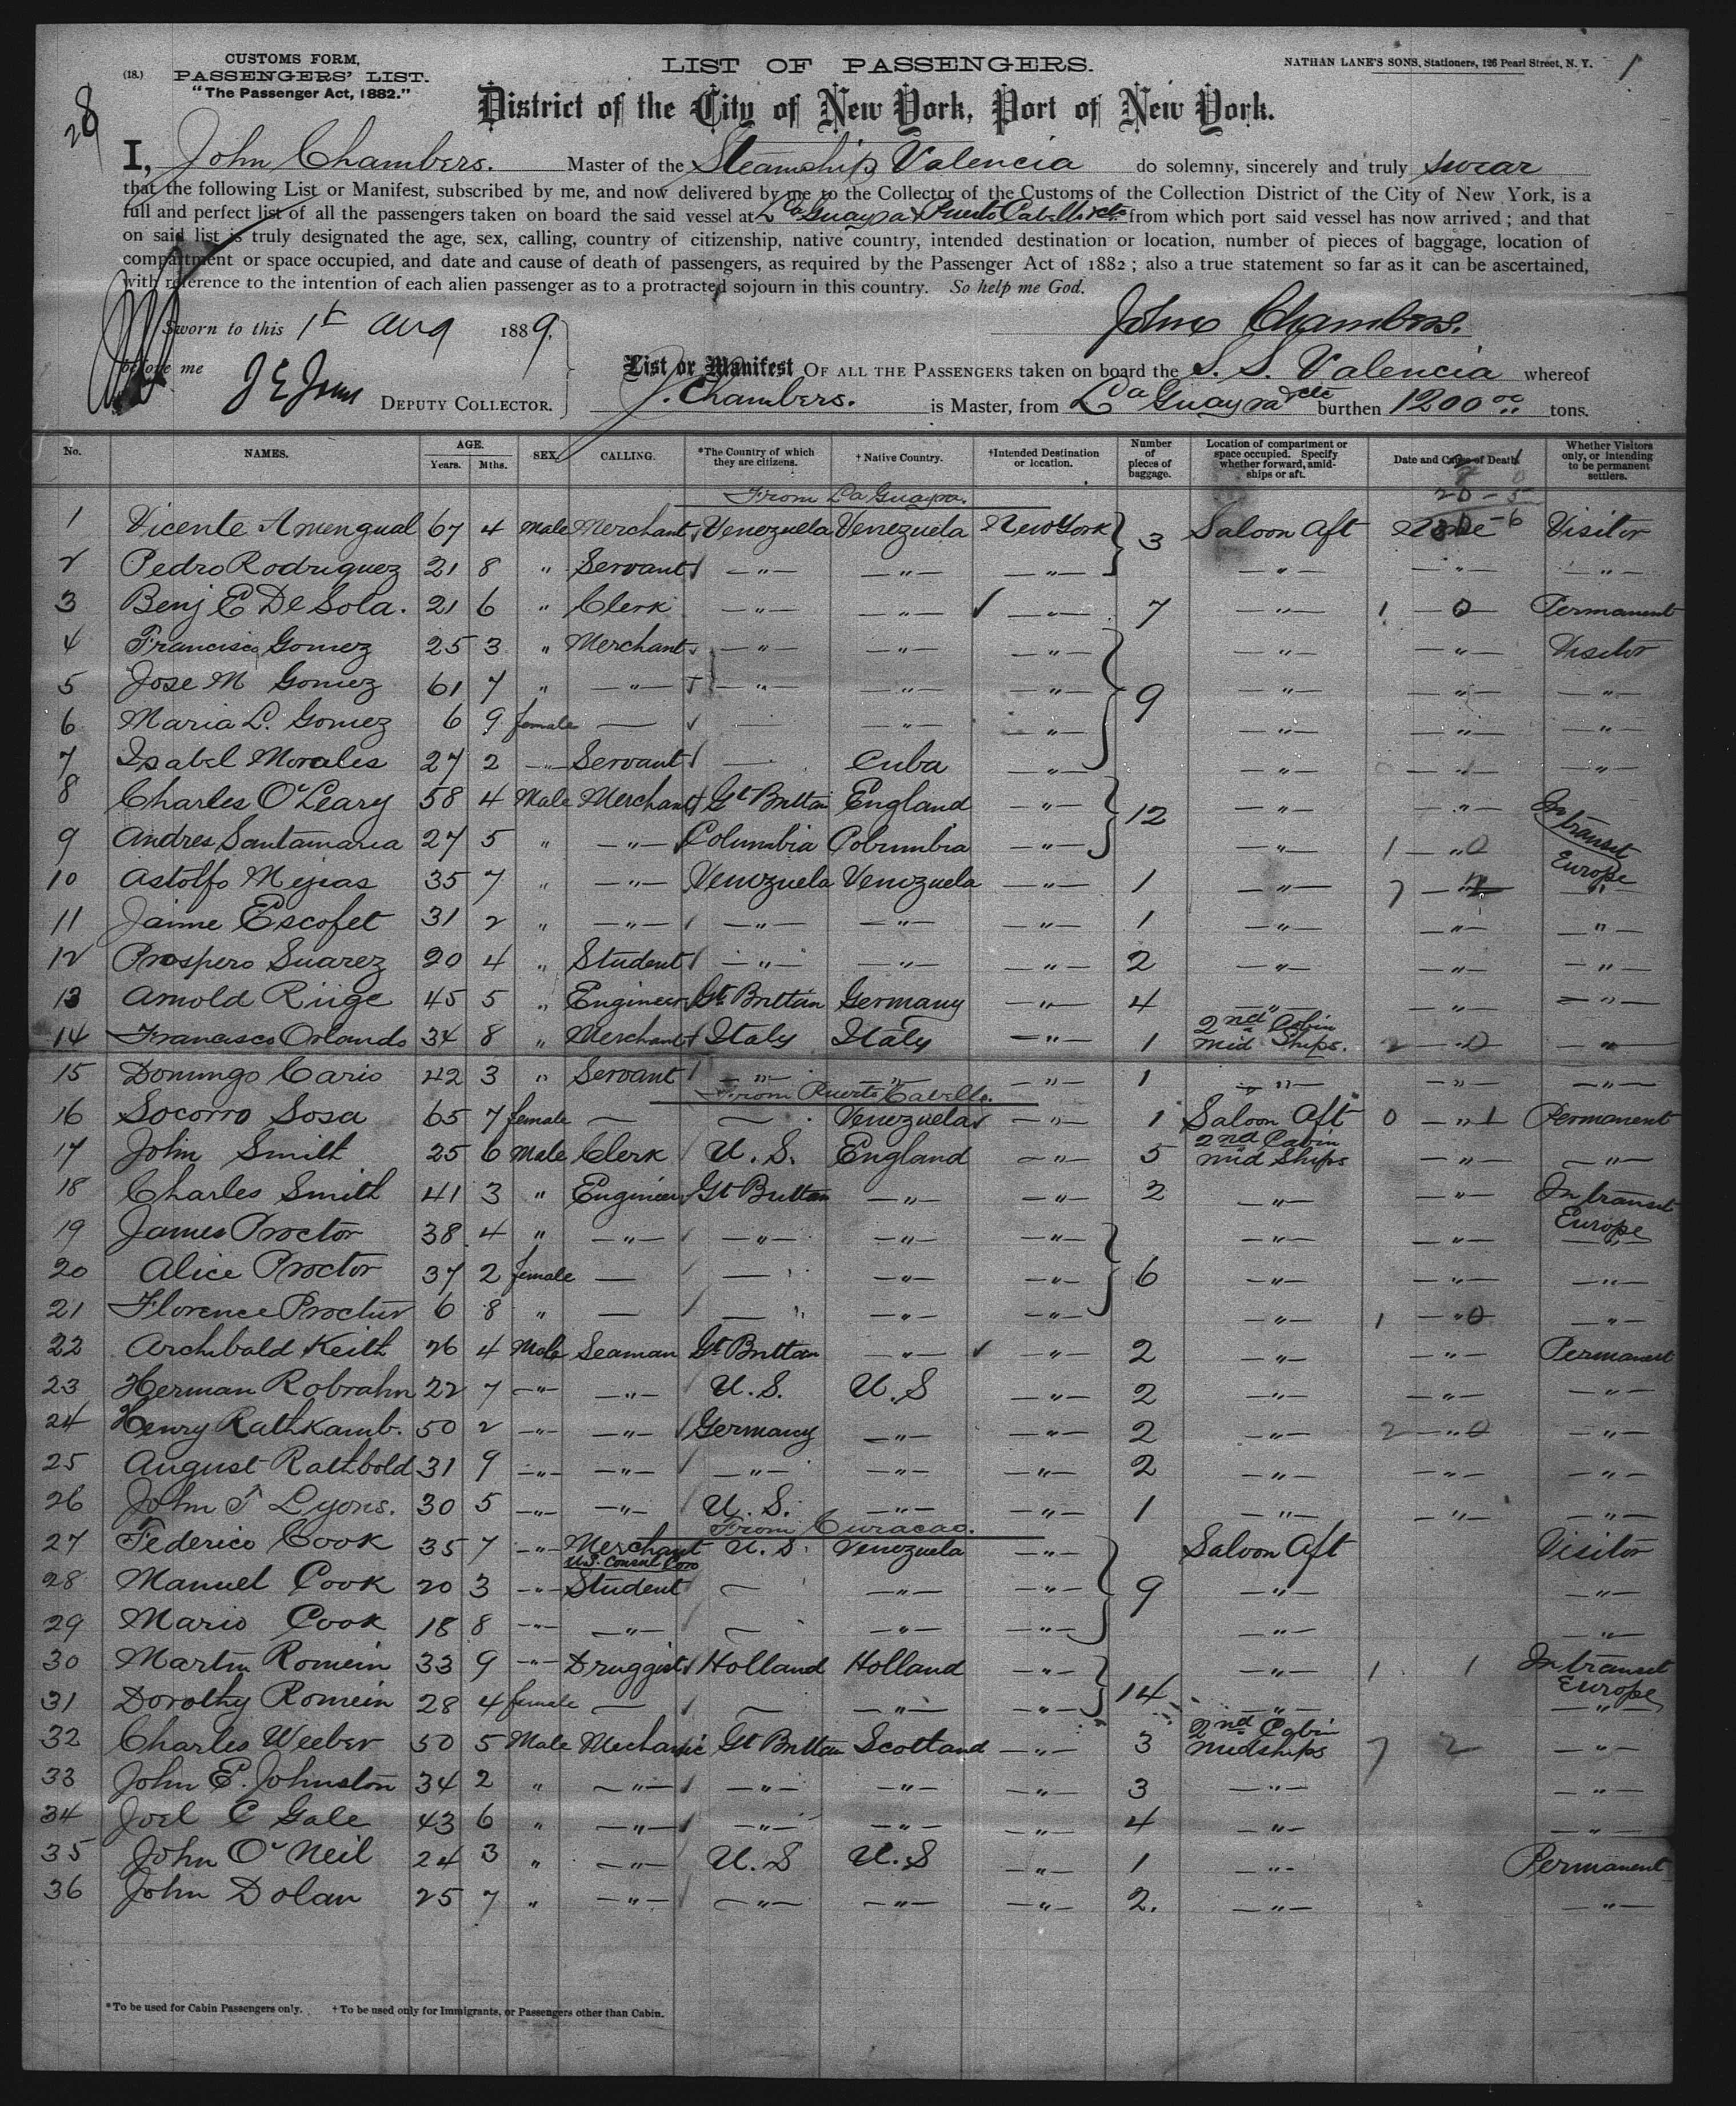 CUSTOMS FORM,
(18.) PASSENGERS' LIST.
"The Passenger Act, 1882."
LIST OF PASSENGERS.
NATHAN LANE'S SONS, Stationers, 126 Pearl Street, N. Y. 1
28
District of the City of New York, Port of New York.
I, John Chambers. Master of the Steamship Valencia do solemny, sincerely and truly swear
that the following List or Manifest, subscribed by me, and now delivered by me to the Collector of the Customs of the Collection District of the City of New York, is a
full and perfect list of all the passengers taken on board the said vessel at La Guayra & Puerto Cabello etc from which port said vessel has now arrived; and that
on said list is truly designated the age, sex, calling, country of citizenship, native country, intended destination or location, number of pieces of baggage, location of
compartment or space occupied, and date and cause of death of passengers, as required by the Passenger Act of 1882; also a true statement so far as it can be ascertained,
with reference to the intention of each alien passenger as to a protracted sojourn in this country. So help me God.
Sworn to this 1st Aug 1889, John Chambers.
before me
DEPUTY COLLECTOR.
List or Manifest OF ALL THE PASSENGERS taken on board the S. S. Valencia whereof
J. Chambers. is Master, from La Guayra etc burthen 1200 tons.
No. NAMES. AGE. Years. Mths. SEX. CALLING. *The Country of which they are citizens. †Native Country. †Intended Destination or location. Number of pieces of baggage. Location of compartment or space occupied. Specify whether forward, amidships or aft. Date and Cause of Death. Whether Visitors only, or intending to be permanent settlers.
From La Guayra.
1 Vicente Amengual 67 4 Male Merchant Venezuela Venezuela New York 3 Saloon Aft None Visitor
2 Pedro Rodriguez 21 8 " Servant —"— —"— —"— —"— —"— —"—
3 Benj E De Sola. 21 6 " Clerk —"— —"— ✓ —"— 7 —"— 1 — 0 — Permanent
4 Francisco Gomez 25 3 " Merchant —"— —"— —"— —"— —"— Visitor
5 Jose M Gomez 61 7 " —"— —"— —"— —"— 9 —"— —"— —"—
6 Maria L. Gomez 6 9 female — — —"— —"— —"— —"— —"—
7 Isabel Morales 27 2 —"— Servant — Cuba —"— —"— —"— —"—
8 Charles O'Leary 58 4 Male Merchant Gt Brittan England —"— 12 —"— —"— In transit Europe
9 Andres Santamaria 27 5 " —"— Columbia Columbia —"— —"— 1 —"0
10 Astolfo Mejias 35 7 " —"— Venezuela Venezuela —"— 1 —"— "
11 Jaime Escofet 31 2 " —"— —"— —"— —"— 1 —"— —"— —"—
12 Prospero Suarez 20 4 " Student —"— —"— —"— 2 —"— —"— —"—
13 Arnold Rüge 45 5 " Engineer Gt Brittan Germany —"— 4 —"— —"— —"—
14 Francisco Orlando 34 8 " Merchant Italy Italy —"— 1 2nd Cabin Mid Ships. 2 —"0 —"—
15 Domingo Cario 42 3 " Servant —"— —"— —"— 1 —"— —"— —"—
From Puerto Cabello.
16 Socorro Sosa 65 7 female — — Venezuela —"— 1 Saloon Aft 0 —"1 Permanent
17 John Smith 25 6 Male Clerk U. S. England —"— 5 2nd Cabin Mid Ships —"— —"—
18 Charles Smith 41 3 " Engineer Gt Brittan —"— —"— 2 —"— —"— In transit Europe
19 James Proctor 38 4 " —"— —"— —"— —"— —"— —"— —"—
20 Alice Proctor 37 2 female — — —"— —"— 6 —"— —"— —"—
21 Florence Proctor 6 8 " — — —"— —"— —"— 1 —"0 —"—
22 Archibald Keith 26 4 Male Seaman Gt Brittan —"— ✓ —"— 2 —"— —"— Permanent
23 Herman Robrahn 22 7 —"— —"— U. S. U. S —"— 2 —"— —"— —"—
24 Henry Rathkamb. 50 2 —"— —"— Germany —"— —"— 2 —"— 2 —"0 —"—
25 August Rathbold 31 9 —"— —"— —"— —"— —"— 2 —"— —"— —"—
26 John T Lyons. 30 5 —"— —"— U. S. —"— —"— 1 —"— —"— —"—
From Curacao.
27 Federico Cook 35 7 —"— Merchant U.S. Consul Coro U. S. Venezuela —"— Saloon Aft Visitor
28 Manuel Cook 20 3 —"— Student — —"— —"— 9 —"— —"—
29 Mario Cook 18 8 —"— —"— — —"— —"— —"— —"—
30 Martin Romein 33 9 —"— Druggist Holland Holland —"— —"— 1 1 In transit Europe
31 Dorothy Romein 28 4 female — — —"— —"— 14 —"— —"—
32 Charles Weeber 50 5 Male Mechanic Gt Brittan Scotland —"— 3 2nd Cabin Midships 7 2 —"—
33 John E. Johnston 34 2 " —"— —"— —"— —"— 3 —"— —"—
34 Joel C Gale 43 6 " —"— —"— —"— —"— 4 —"— —"—
35 John O'Neil 24 3 " —"— U. S U. S —"— 1 —"— Permanent
36 John Dolan 25 7 " —"— —"— —"— —"— 2. —"— —"—
*To be used for Cabin Passengers only. †To be used only for Immigrants, or Passengers other than Cabin.